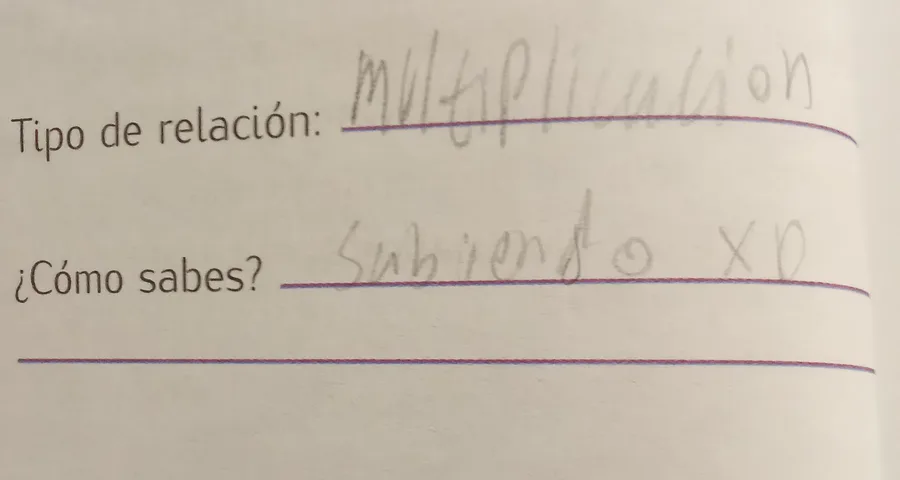 Tipo de relación: multiplicacion
¿Cómo sabes? Subiendo XD